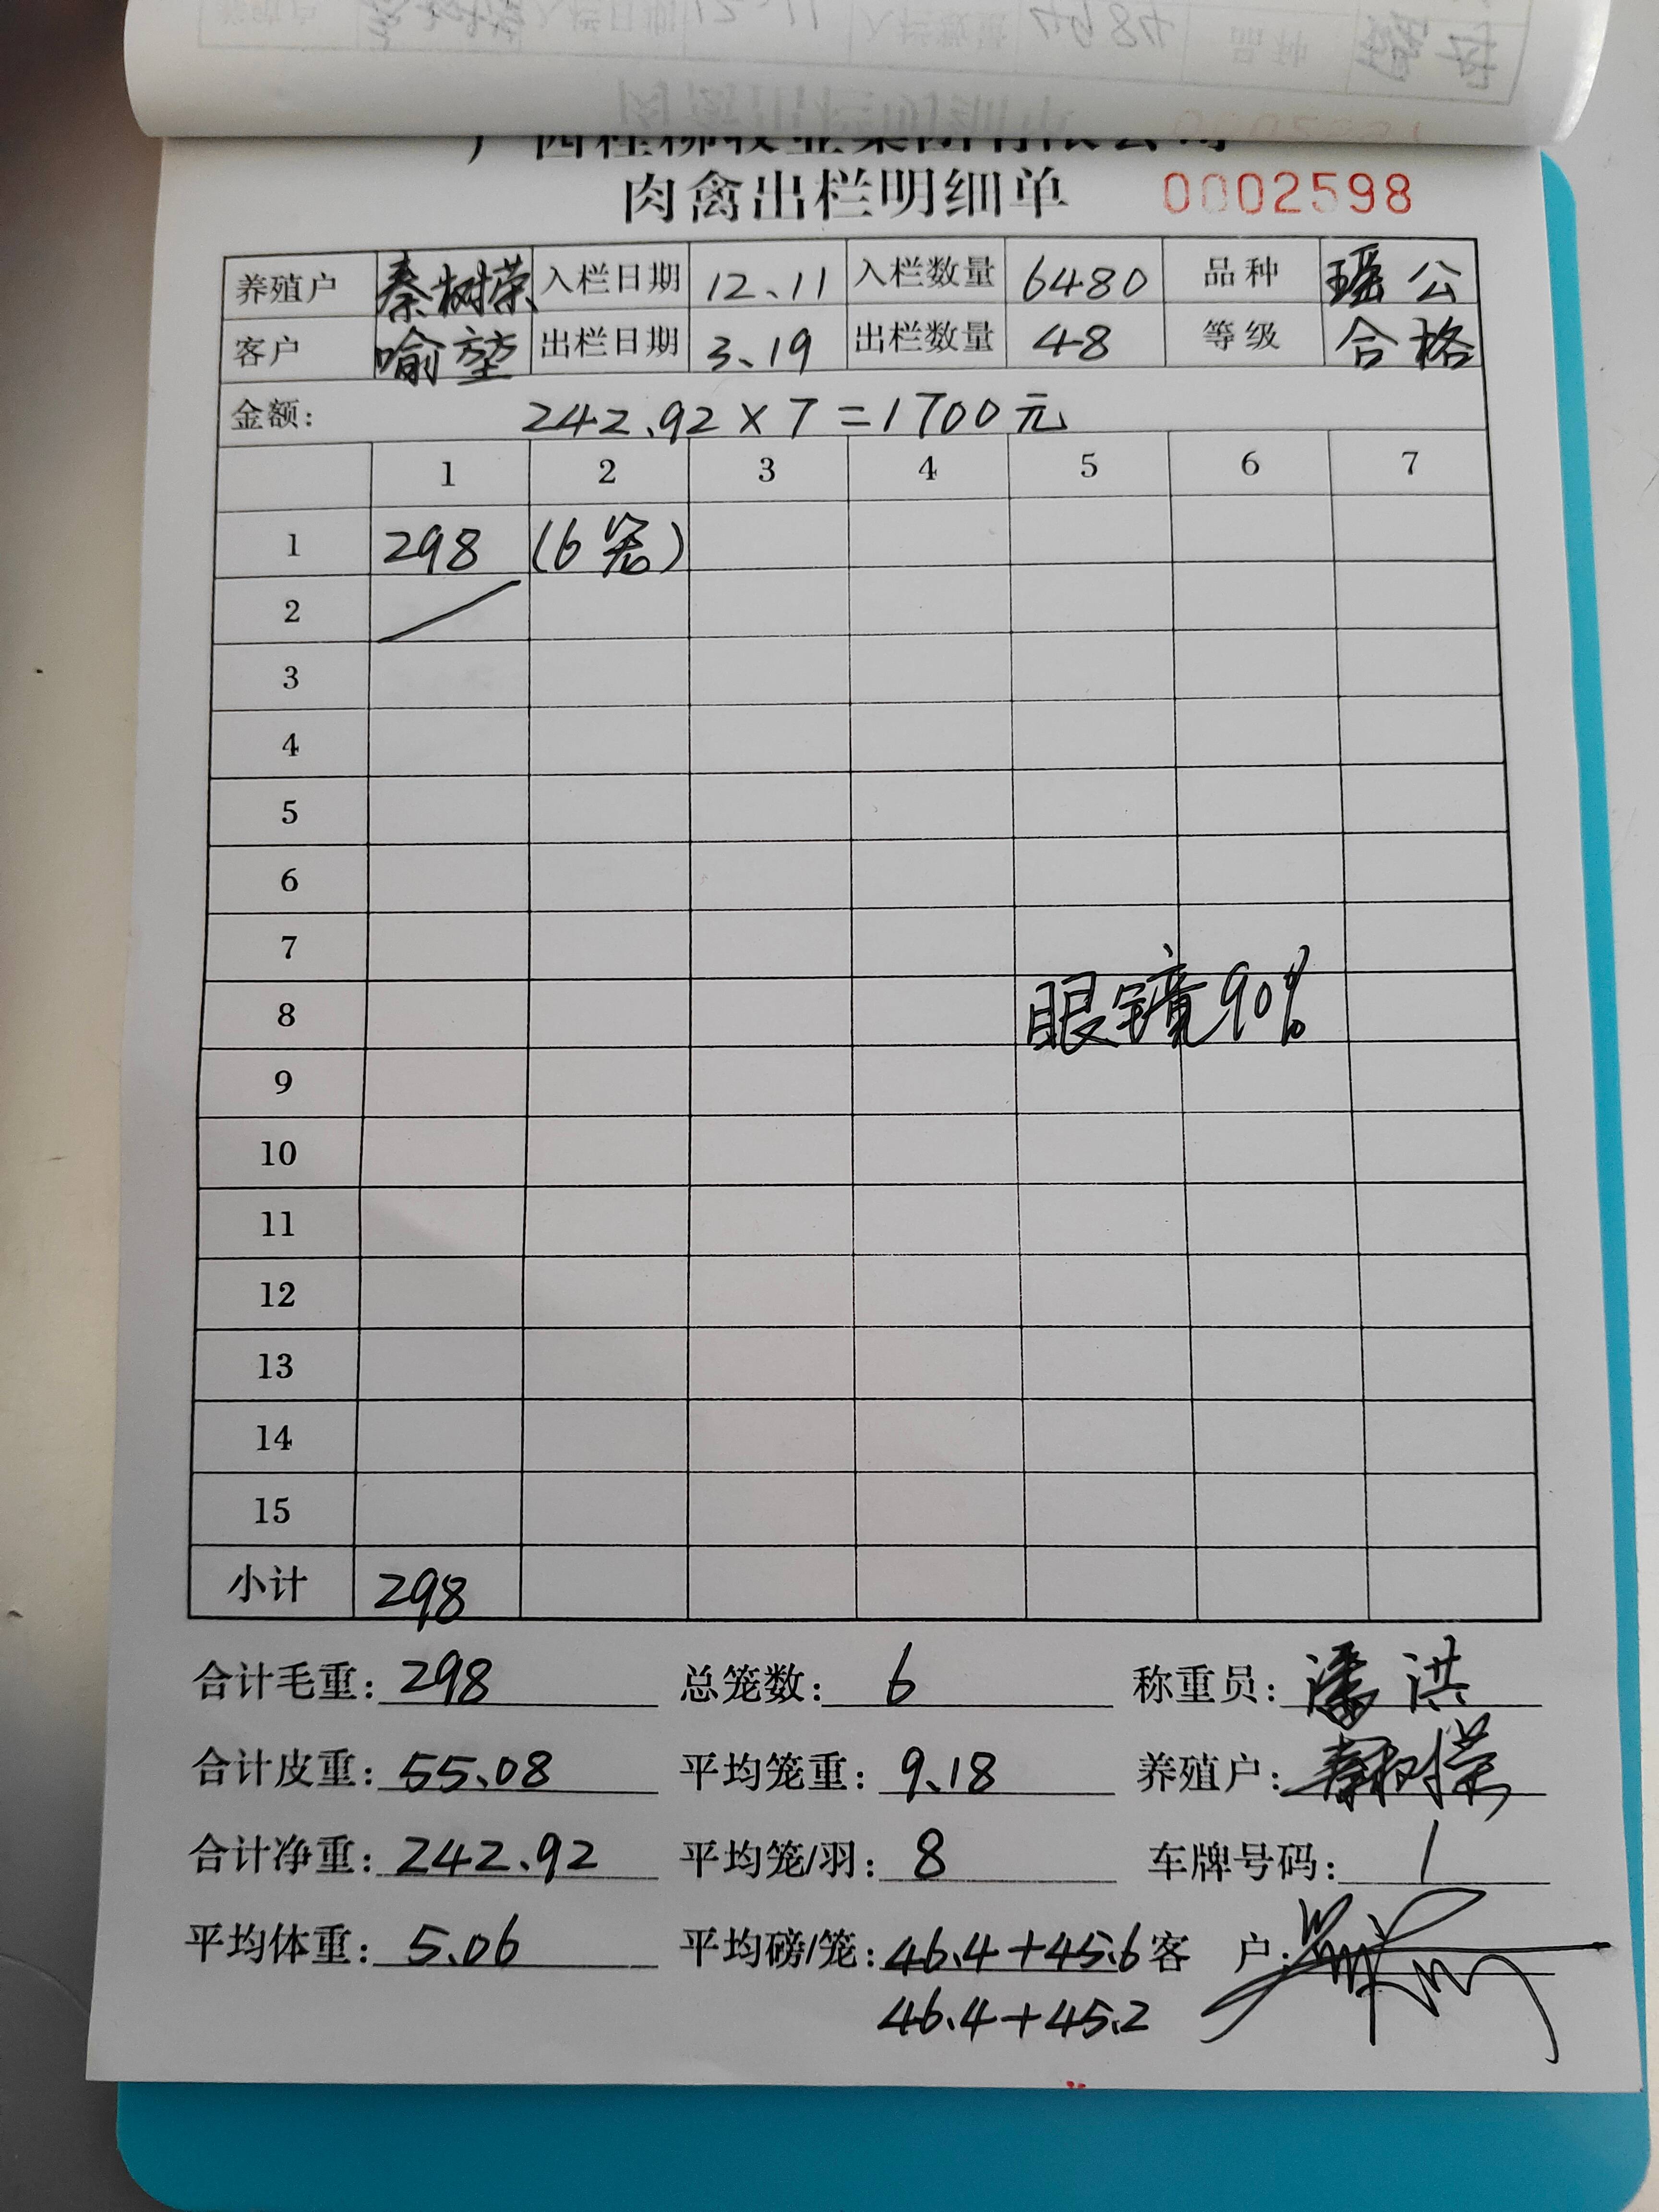 肉禽出栏明细单 0002598
养殖户 秦树荣 入栏日期 12.11 入栏数量 6480 品种 瑶公
客户 喻堃 出栏日期 3.19 出栏数量 48 等级 合格
金额: 242.92×7=1700元
1 2 3 4 5 6 7
1 298 (6笼)
2
3
4
5
6
7
8 眼镜90%
9
10
11
12
13
14
15
小计 298
合计毛重: 298 总笼数: 6 称重员: 潘洪
合计皮重: 55.08 平均笼重: 9.18 养殖户: 秦树荣
合计净重: 242.92 平均笼/羽: 8 车牌号码: /
平均体重: 5.06 平均磅/笼: 46.4+45.6 客 户:
46.4+45.2